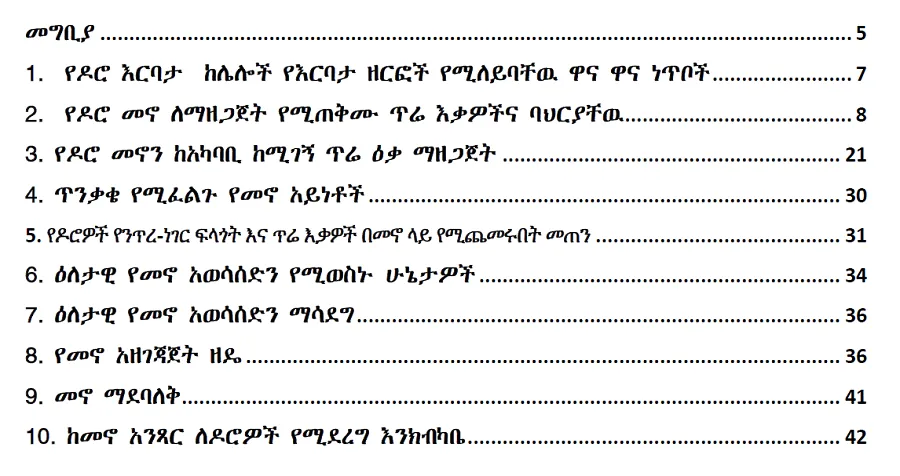 መግቢያ ........ 5
1. የዶሮ እርባታ ከሌሎች የእርባታ ዘርፎች የሚለይባቸዉ ዋና ዋና ነጥቦች ........ 7
2. የዶሮ መኖ ለማዘጋጀት የሚጠቅሙ ጥሬ እቃዎችና ባህርያቸዉ ........ 8
3. የዶሮ መኖን ከአካባቢ ከሚገኝ ጥሬ ዕቃ ማዘጋጀት ........ 21
4. ጥንቃቄ የሚፈልጉ የመኖ አይነቶች ........ 30
5. የዶሮዎች የንጥረ-ነገር ፍላጎት እና ጥሬ እቃዎች በመኖ ላይ የሚጨመሩበት መጠን ........ 31
6. ዕለታዊ የመኖ አወሳሰድን የሚወስኑ ሁኔታዎች ........ 34
7. ዕለታዊ የመኖ አወሳሰድን ማሳደግ ........ 36
8. የመኖ አዘገጃጀት ዘዴ ........ 36
9. መኖ ማደባለቅ ........ 41
10. ከመኖ አንጻር ለዶሮዎች የሚደረግ እንክብካቤ ........ 42